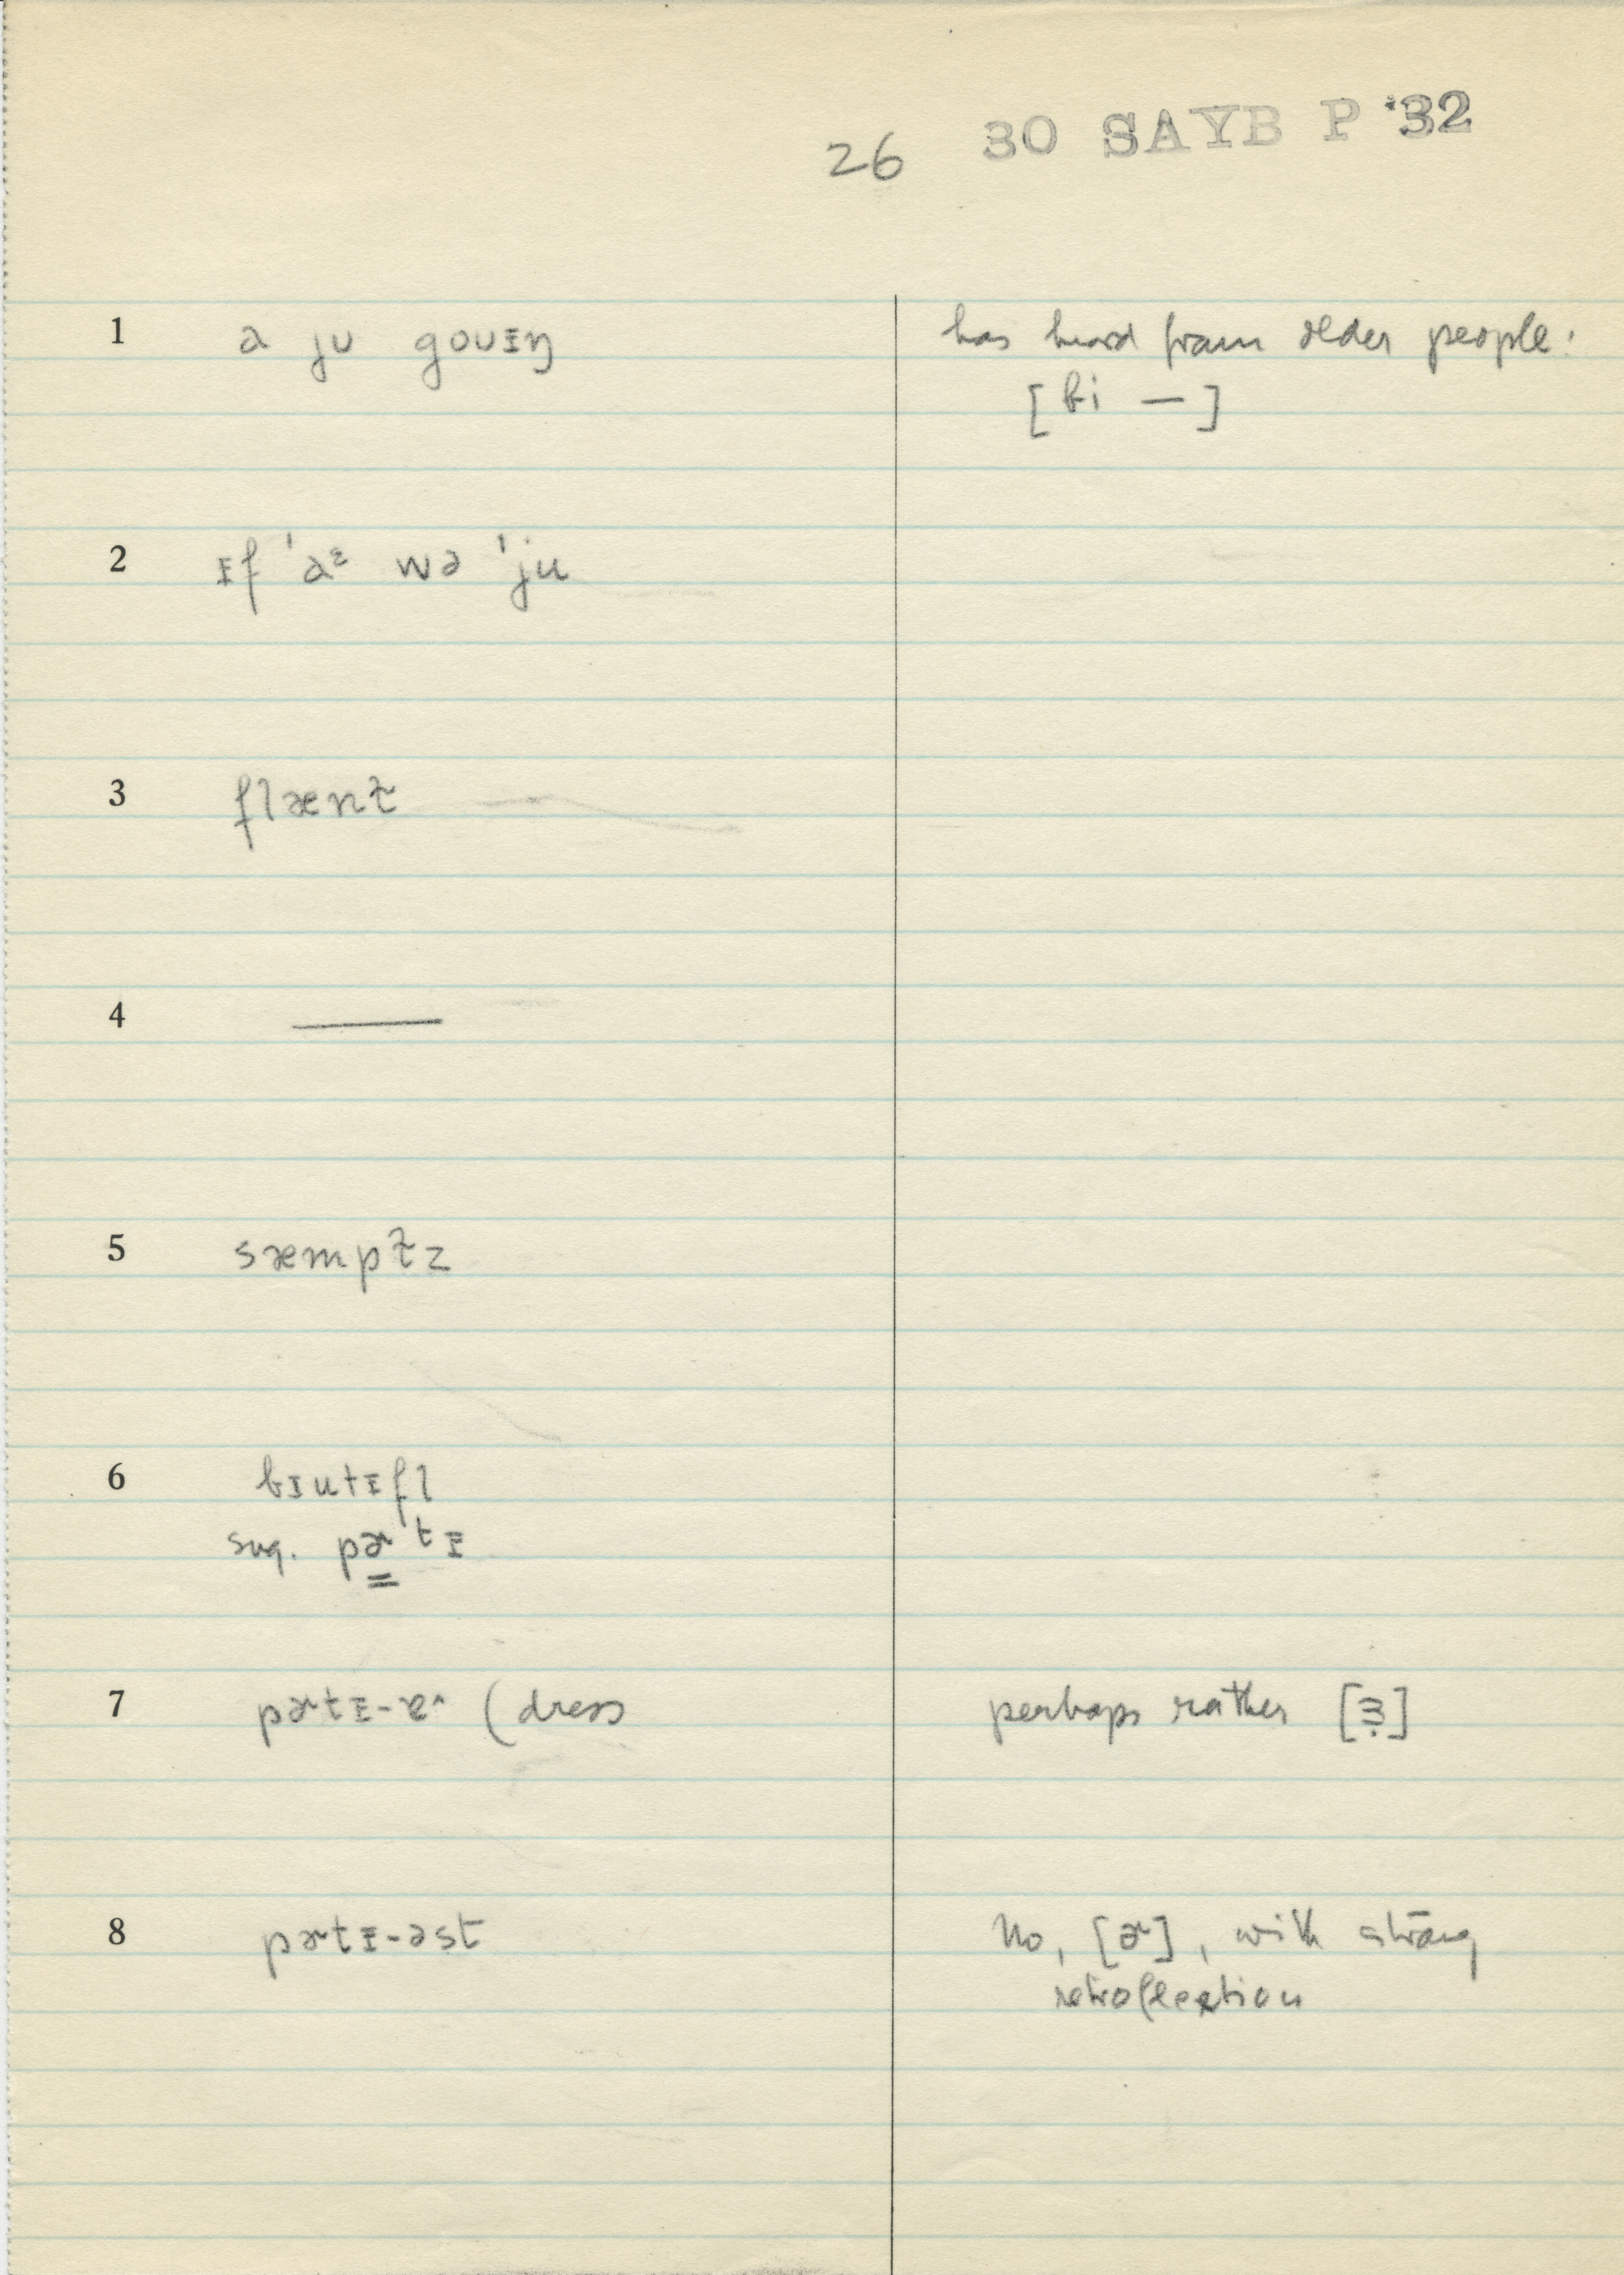 26 30 SAYB P '32
1 a ju goʊɪŋ has heard from older people:
[bi —]
2 ɪf 'aᵋ wə 'ju
3 flænt̬
4 ———
5 sæmpt̬z
6 bɪutɪfl
sug. pɚtɪ
7 pɚtɪ-ɚ (dress perhaps rather [ɜ̣]
8 pɚtɪ-əst No, [ɚ], with strong
retroflection